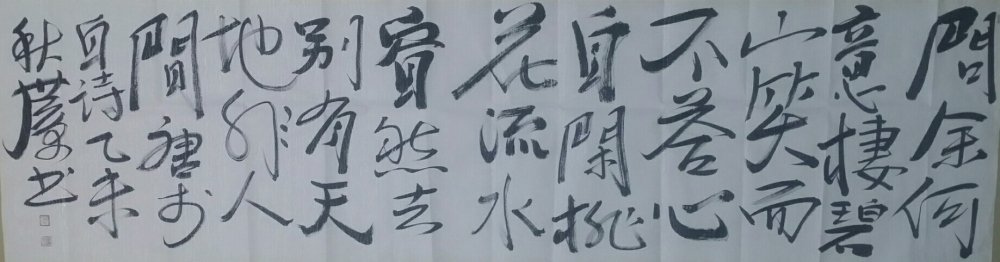 問余何
意棲碧
山笑而
不答心
自閑桃
花流水
窅然去
別有天
地非人
間唐李
白詩乙未
秋 书